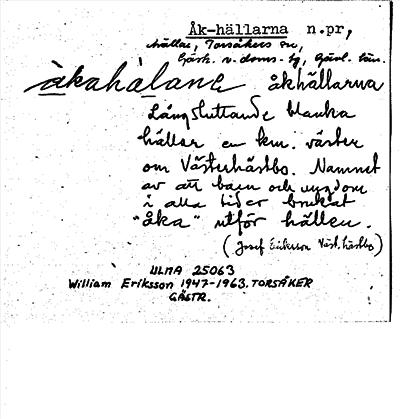 Åk-hällarna n.pr,
hällar, Torsåkers sn,
Gästr. v. doms-sg, Gävl. län.
åkahälanę åkhällarna
Långsluttande blanka
hällar en km. väster
om Västerhästbo. Namnet
av att barn och ungdom
i alla tider brukat
"åka" utför hällen.
(Josef Eriksson Väst. hästbo)
ULMA 25063
William Eriksson 1947-1963. TORSÅKER
GÄSTR.